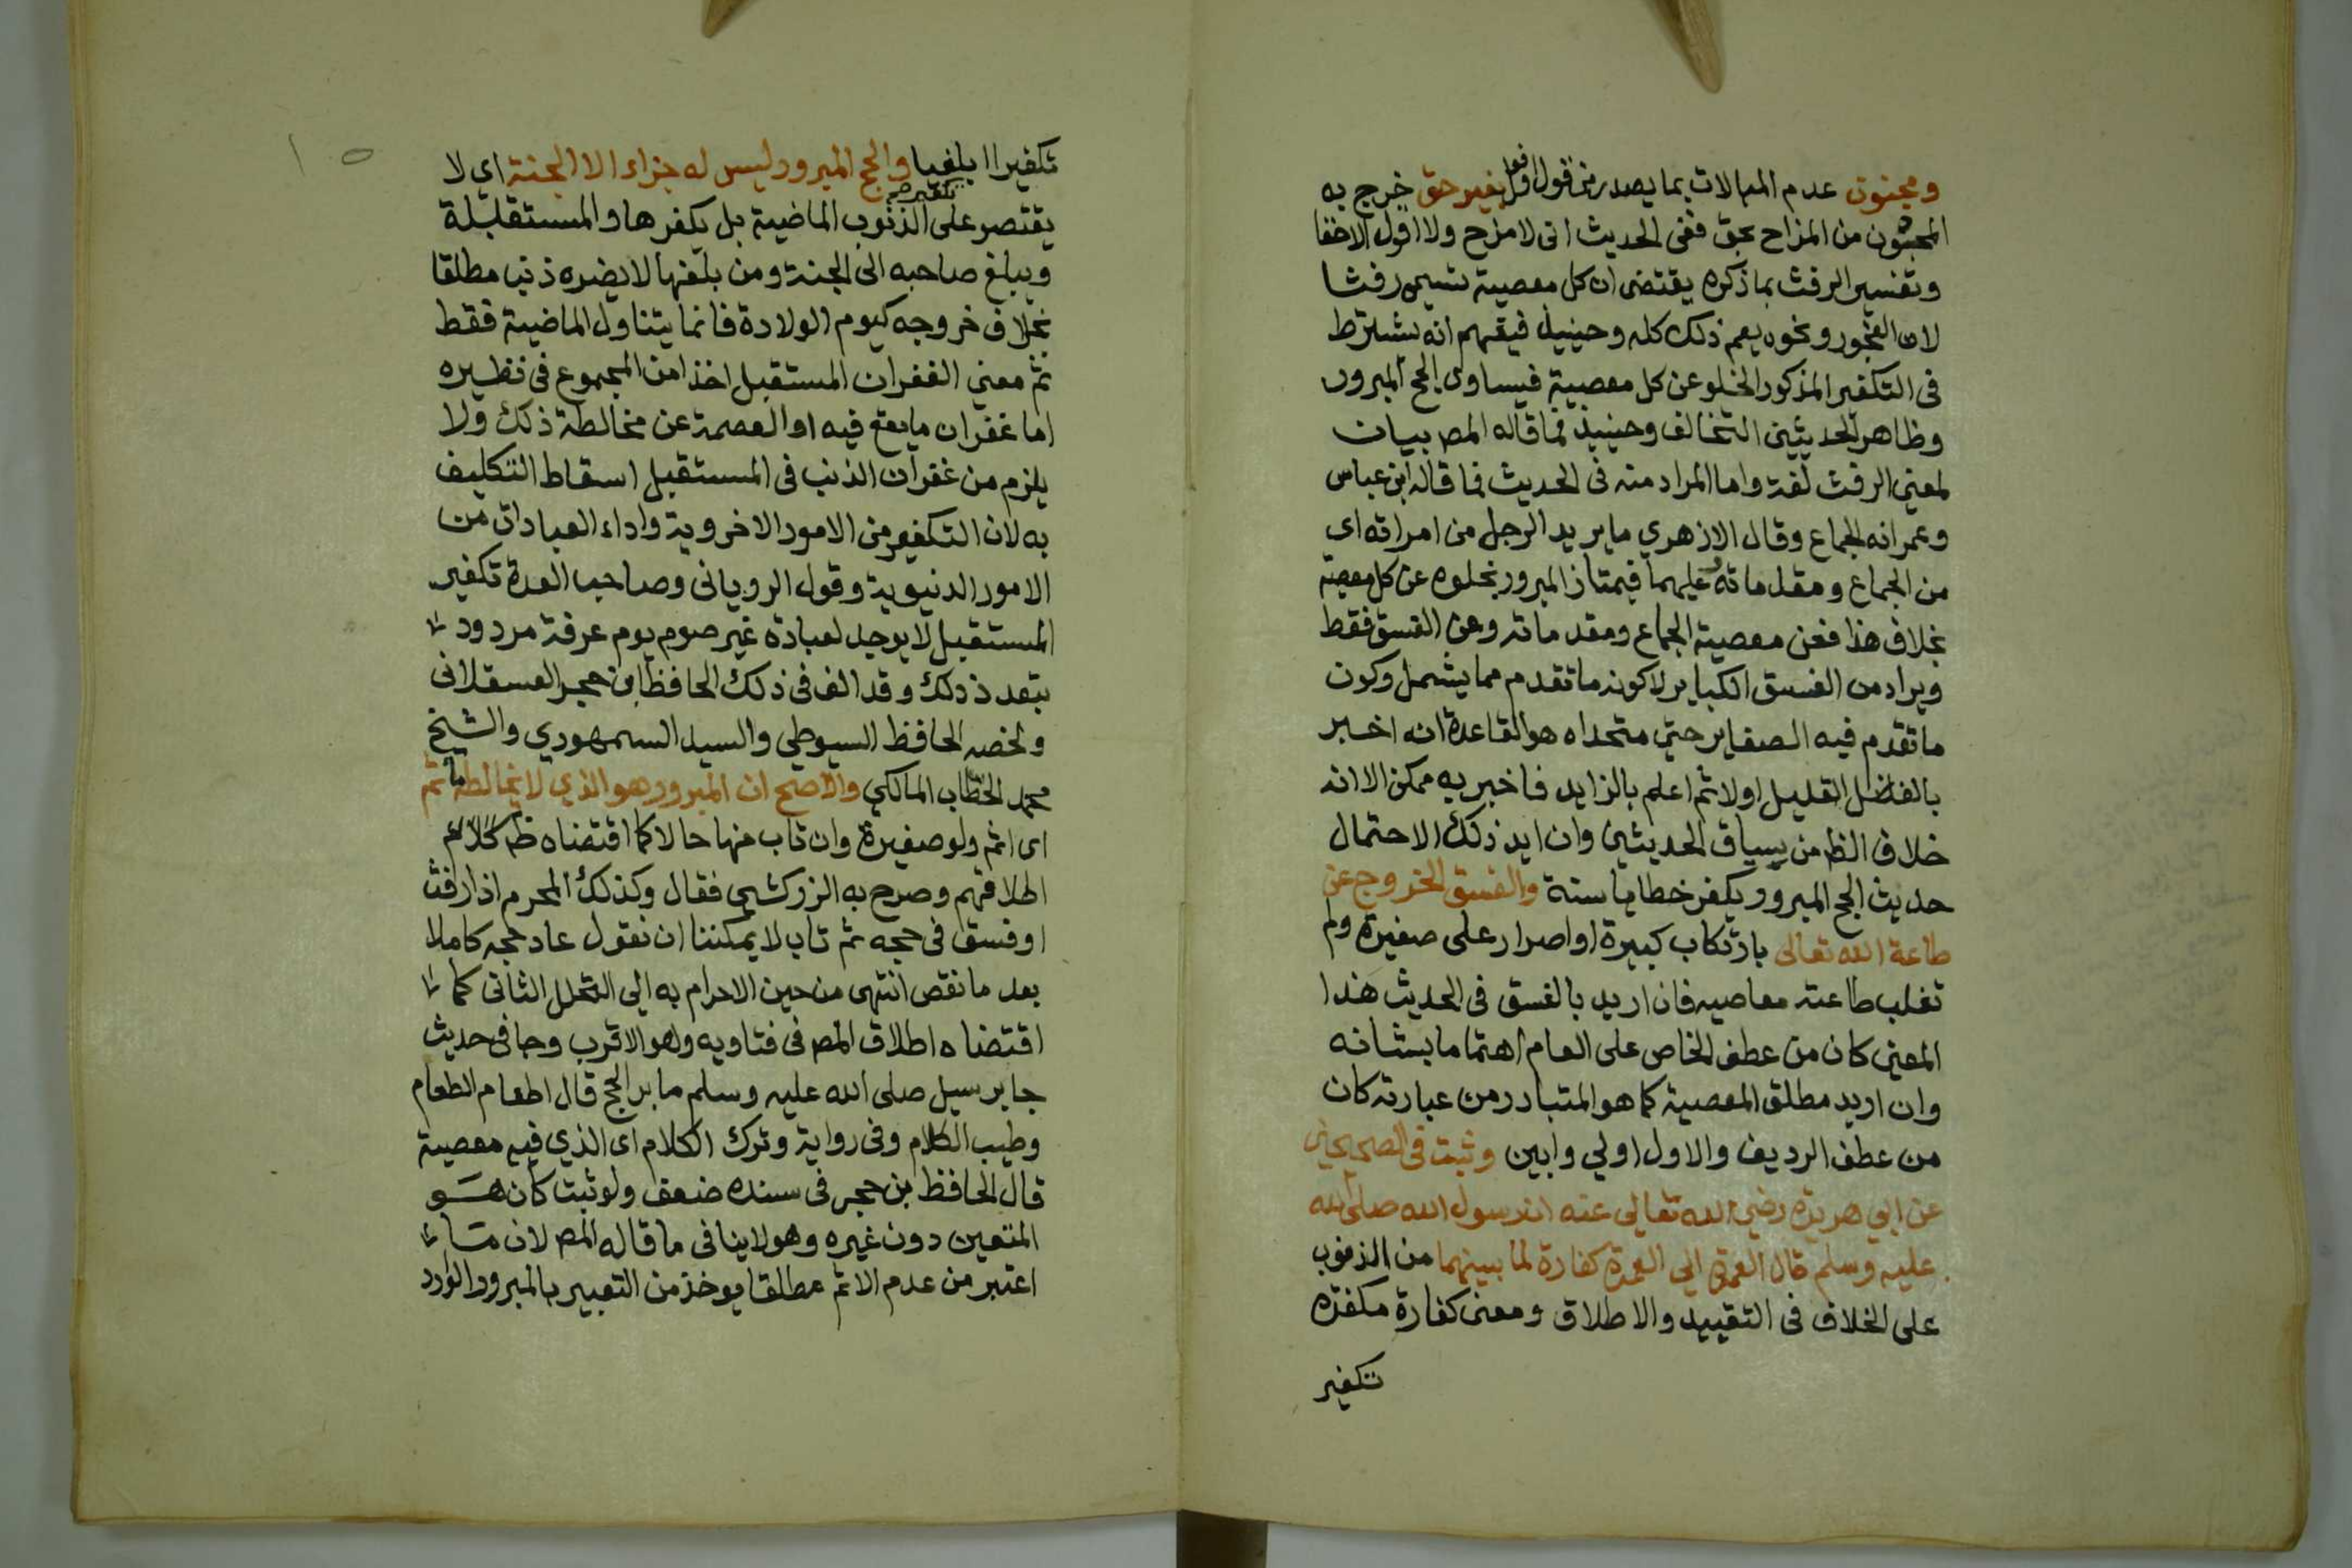 ومجنون عدم المبالات بما يصدر من قول او فعل بغير حق خرج به
المجنون من المزاح بحق ففى الحديث انى لامزح ولا اقول الا حقا
وتفسير الرفث بما ذكره يقتضى ان كل معصية تسمى رفثا
لان الفجور ونحوه يعم ذلك كله وحينيذ فيفهم انه يشترط
فى التكفير المذكور الخلو عن كل معصية فيساوى الحج المبرور
وظاهر الحديثين التخالف وحينيذ فما قاله المص بيان
لمعنى الرفث لغة واما المراد منه فى الحديث فما قاله ابن عباس
وعمر انه الجماع وقال الازهري ما يريد الرجل من امراته اى
من الجماع ومقدماته عليهما فيمتاز المبرور بخلوه عن كل معصية
بخلاف هذا فعن معصية الجماع ومقدماته وعن الفسق فقط
ويراد من الفسق الكباير لا كونه ما تقدم مما يشمل وكون
ما تقدم فيه الصغاير حتى متحداه هو القاعدة انه اخبر
بالفضل القليل اولا ثم اعلم بالزايد فاخبر به ممكن الا انه
خلاف الظ من سياق الحديثين وان ايد ذلك الاحتمال
حديث الحج المبرور يكفر خطايا سنة والفسق الخروج عن
طاعة الله تعالى بارتكاب كبيرة او اصرار على صغيرة ولم
تغلب طاعته معاصيه فان اريد بالفسق فى الحديث هذا
المعنى كان من عطف الخاص على العام اهتماما بشانه
وان اريد مطلق المعصية كما هو المتبادر من عبارته كان
من عطف الرديف والاول اولي وابين وثبت فى الصحيحين
عن ابي هريرة رضي الله تعالى عنه ان رسول الله صلى الله
عليه وسلم قال العمرة الى العمرة كفارة لما بينهما من الذنوب
على الخلاف فى التقييد والاطلاق ومعنى كفارة مكفرة
تكفير
تكفيرا بليغيا والحج المبرور ليس له جزاء الا الجنة اي لا
يقتصر على تكفير الذنوب الماضية بل يكفرها والمستقبلة
ويبلغ صاحبه الى الجنة ومن بلغها لا يضره ذنب مطلقا
بخلاف خروجه كيوم الولادة فانما يتناول الماضية فقط
ثم معنى الغفران المستقبل اخذا من المجموع فى نظيره
اما غفران ما يقع فيه او العصمة عن مخالطة ذلك ولا
يلزم من غفران الذنب فى المستقبل اسقاط التكليف
به لان التكفير من الامور الاخروية واداء العبادات من
الامور الدنيوية وقول الرويانى وصاحب العدة تكفير
المستقبل لا يوجد لعبادة غير صوم يوم عرفة مردود
بتعدد ذلك وقد الف فى ذلك الحافظ ابن حجر العسقلانى
ولخصه الحافظ السيوطي والسيد السمهودي والشيخ
محمد الخطاب المالكي والاصح ان المبرور هو الذي لا يخالطه ماثم
اى اثم ولو صغيرة وان تاب منها حالا كما اقتضاه ظ كلام
اطلاقهم وصرح به الزركشي فقال وكذلك المحرم اذا رفث
او فسق فى حجه ثم تاب لا يمكننا ان نقول عاد حجه كاملا
بعد ما نقص انتهى من حين الاحرام به الي التحلل الثانى كما
اقتضاه اطلاق المص فى فتاويه وهو الاقرب وجا فى حديث
جابر سيل صلى الله عليه وسلم ما بر الحج قال اطعام الطعام
وطيب الكلام وفى رواية وترك الكلام اى الذي فيه معصية
قال الحافظ بن حجر فى سنده ضعف ولو ثبت كان هو
المتعين دون غيره وهو لا ينافى ما قاله المص لان ما
اعتبر من عدم الاثم مطلقا يوخذ من التعبير بالمبرور الوارد